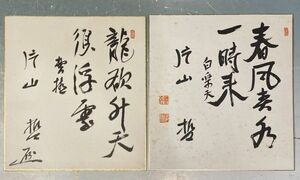 龍欲升天
須浮雲
曹植
片山哲
春風春水
一時来
白楽天
片山哲